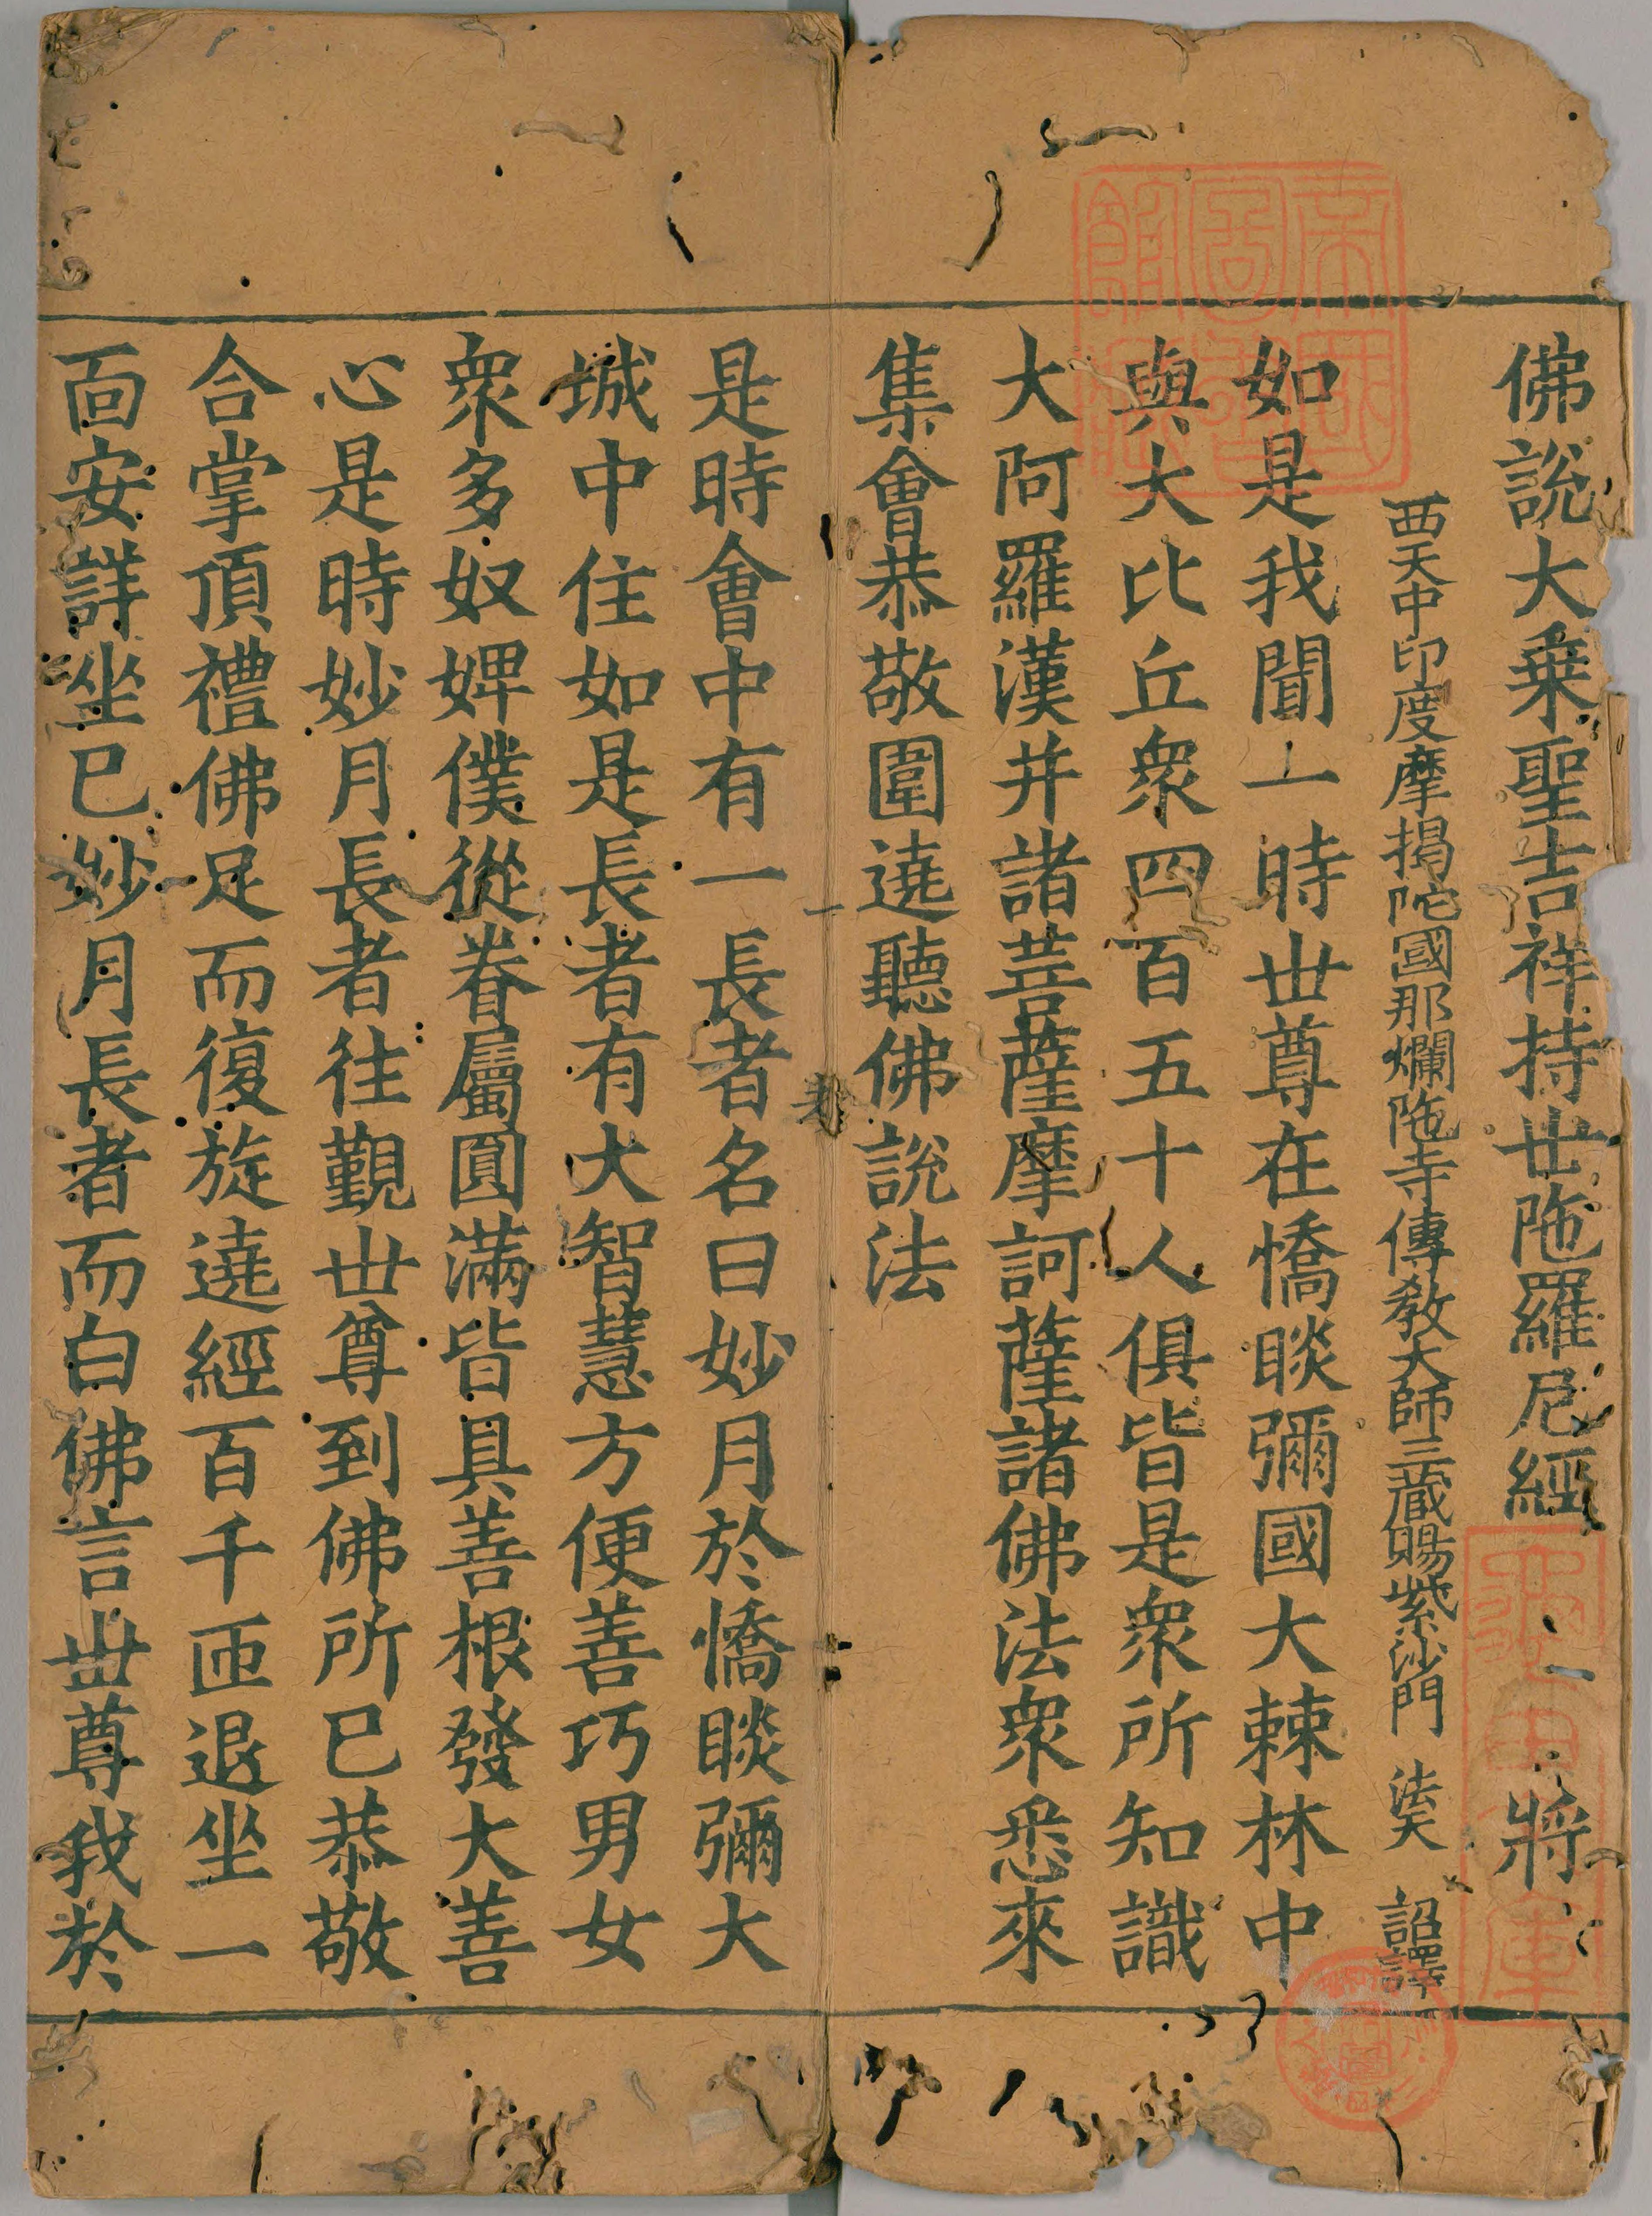 佛說大乗聖吉祥持丗陁羅尼經 將
西天中印度摩揭陀國那爛陁寺傳教大師三藏賜紫沙門 法天 詔譯
如是我聞一時丗尊在憍睒彌國大棘林中
與大比丘衆四百五十人俱皆是衆所知識
大阿羅漢并諸菩薩摩訶薩諸佛法衆悉來
集會恭敬圍遶聽佛說法
是時會中有一長者名曰妙月於憍睒彌大
城中住如是長者有大智慧方便善巧男女
衆多奴婢僕從眷屬圓滿皆具善根發大善
心是時妙月長者往觀丗尊到佛所已恭敬
合掌頂禮佛足而復旋遶經百千匝退坐一
面安詳坐已妙月長者而白佛言丗尊我於